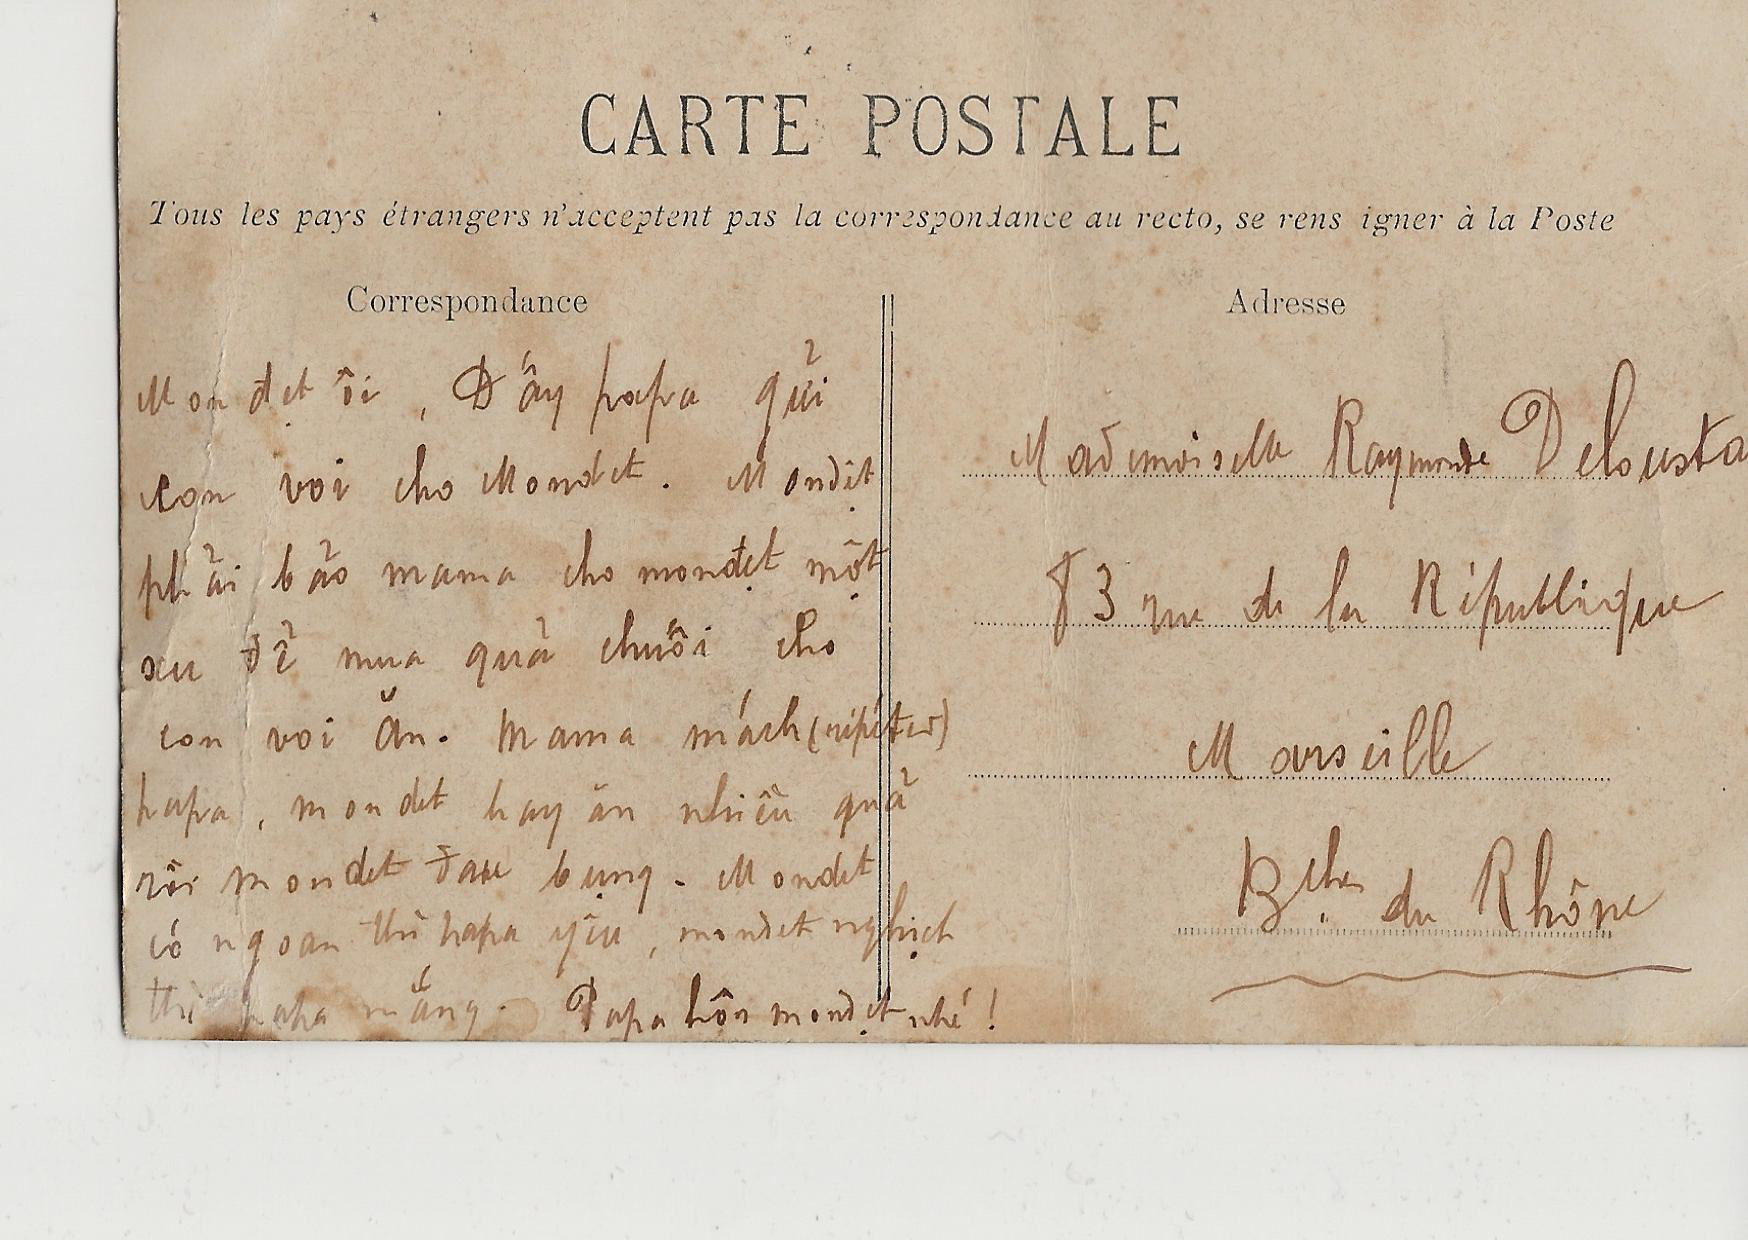 CARTE POSTALE
Tous les pays étrangers n'acceptent pas la correspondance au recto, se renseigner à la Poste
Correspondance
Mon đẹt ôi, Đấy papa gửi
con voi cho Mondet. Mondẹt
phải bảo mama cho monđẹt một
xu để mua quả chuối cho
con voi ăn. Mama mách (répéter)
papa, mondet hay ăn nhiều quả
rồi mondet đau bụng. Mondet
có ngoan thì papa yêu, mondet nghịch
thì papa mắng. Papa hôn mondẹt nhé!
Adresse
Mademoiselle Raymonde
83 rue de la République
Marseille
Bches du Rhône